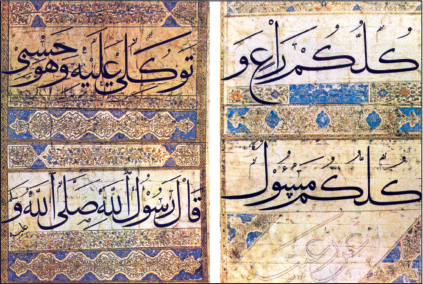 توكلي عليه وهو حسبي
قال رسول الله صلى الله و
كلكم راع و
كلكم مسئول